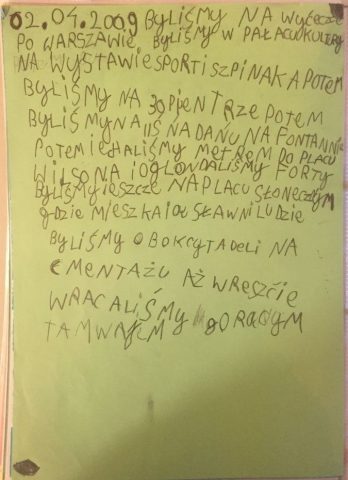 02.04.2009 BYLIŚMY NA WYCECZCE
PO WARSZAWIE BYLIŚMY W PAŁACUKULTURY
NA WYSTAWIE SPORT I SZPINAK A POTEM
BYLIŚMY NA 30 PIENTRZE POTEM
BYLIŚMY NA NA FONTANNIE
POTEM IEHALIŚMY METREM DO PLACU
WILSONA I OGLONDALIŚMY FORTY
BYLIŚMY IESZCZE NA PLACU SŁONECZNYM
GDZIE MIESZKAIOM SŁAWNI LUDZIE
BYLIŚMY OBOK CYTADELI NA
CMENTAŻU AŻ WRESZCIE
WRACALIŚMY
TAMWAJEM GORĄCYM